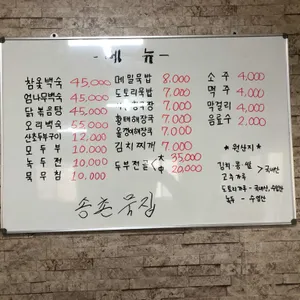 - 메 뉴 -
참옻백숙 45,000
엄나무백숙 45,000
닭볶음탕 45,000
오리백숙 55,000
산초두부구이 12,000
모두부 10,000
녹두전 10,000
묵무침 10,000
메밀묵밥 8,000
도토리묵밥 7,000
7,000
황태해장국 7,000
올갱이해장국 7,000
김치찌개 7,000
두부전골 大 35,000
中 20,000
소주 4,000
맥주 4,000
막걸리 4,000
음료수 2,000
* 원산지 *
김치·콩·쌀
고추가루 > 국내산
도토리가루 - 국내산, 수입산
녹두 - 수입산
송촌 묵집